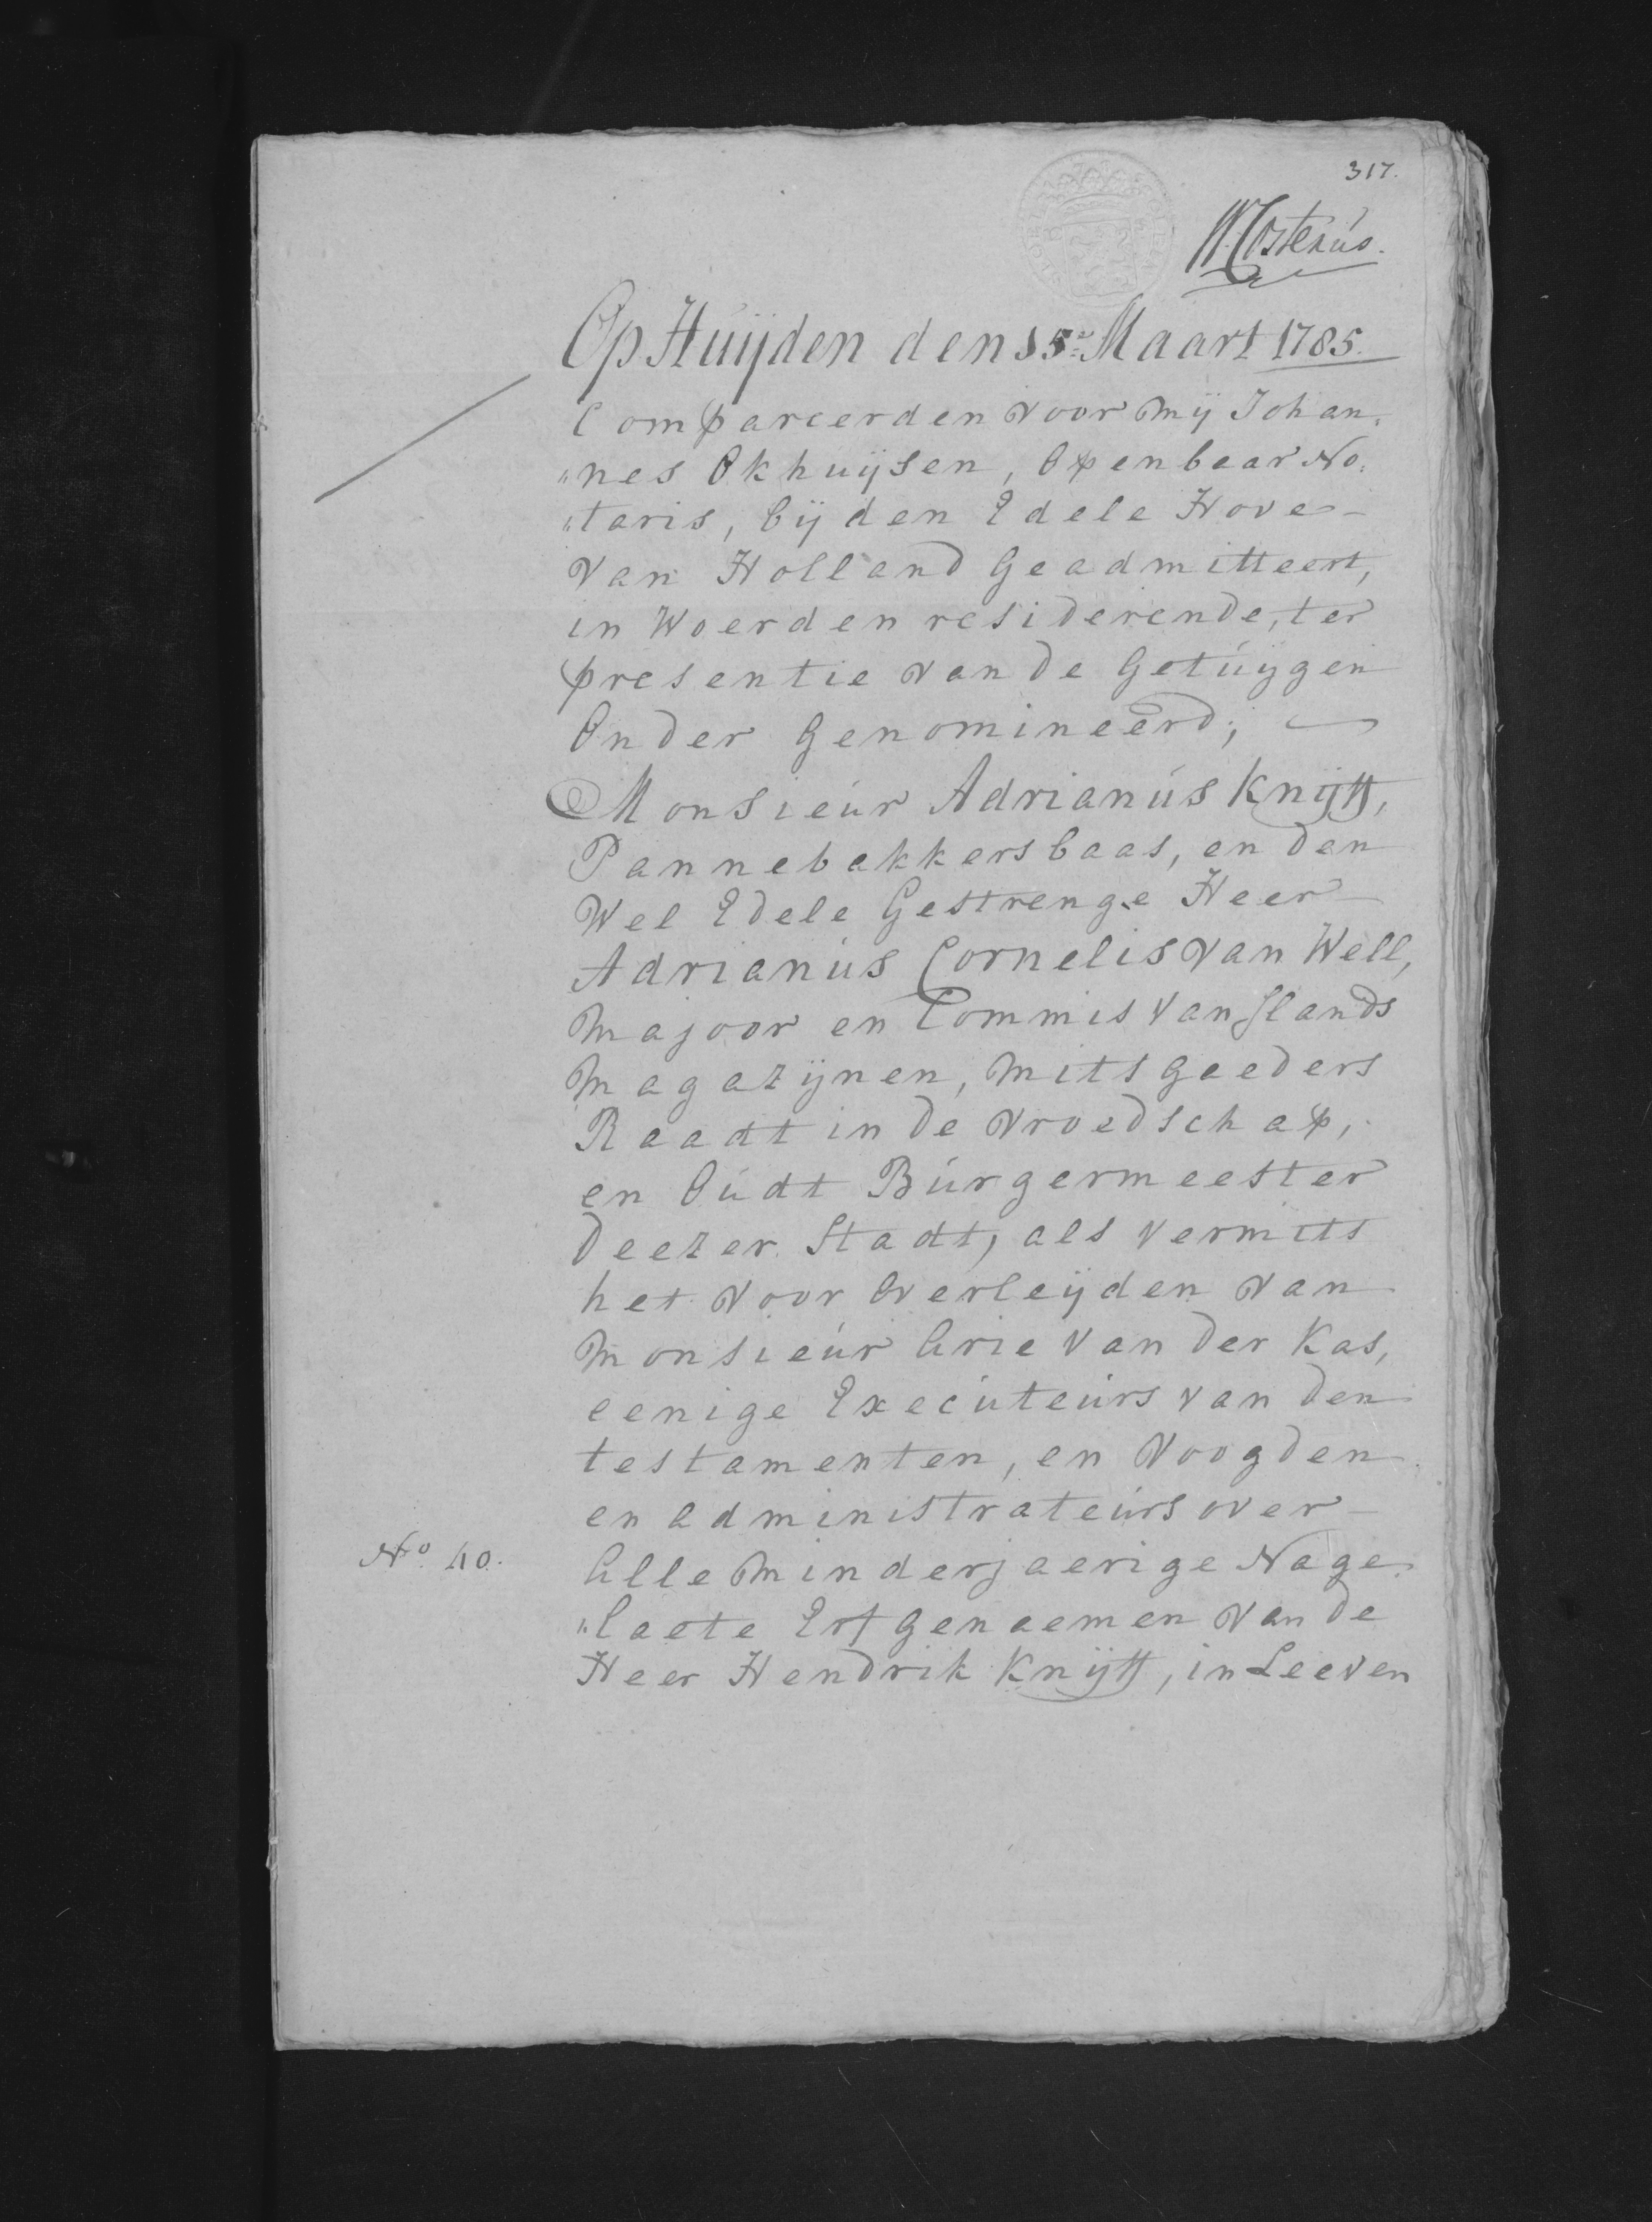 317.
W Costerús.
Op Húijden den 15.e Maart 1785.
Compareerden voor Mij Johan,
"nes Okhuijsen, Openbaar No:
"taris, bij den Edele Hove -
van Holland Geadmitteert,
in Woerden residerende, ter
presentie van de Getúijgen
Onder Genomineerd;
Monsieúr Adrianús Knijff,
Pannebakkersbaas, en den
Wel Edele Gestrenge Heer
Adrianús Cornelis van Well,
Majoor en Commis van Slands
Magazijnen, Mitsgaeders
Raadt in de vroedschap,
en Oúdt Búrgermeester
deezer Stadt, als vermits
het voor Overleijden van
Monsieúr Arie van der Kas,
eenige Execúteúrs van den
testamenten, en Voogden
en administrateúrs over -
Alle Minderjaerige Nage:
"laete Erfgenaemen van de
Heer Hendrik Knijff, in Leeven
No. 40.